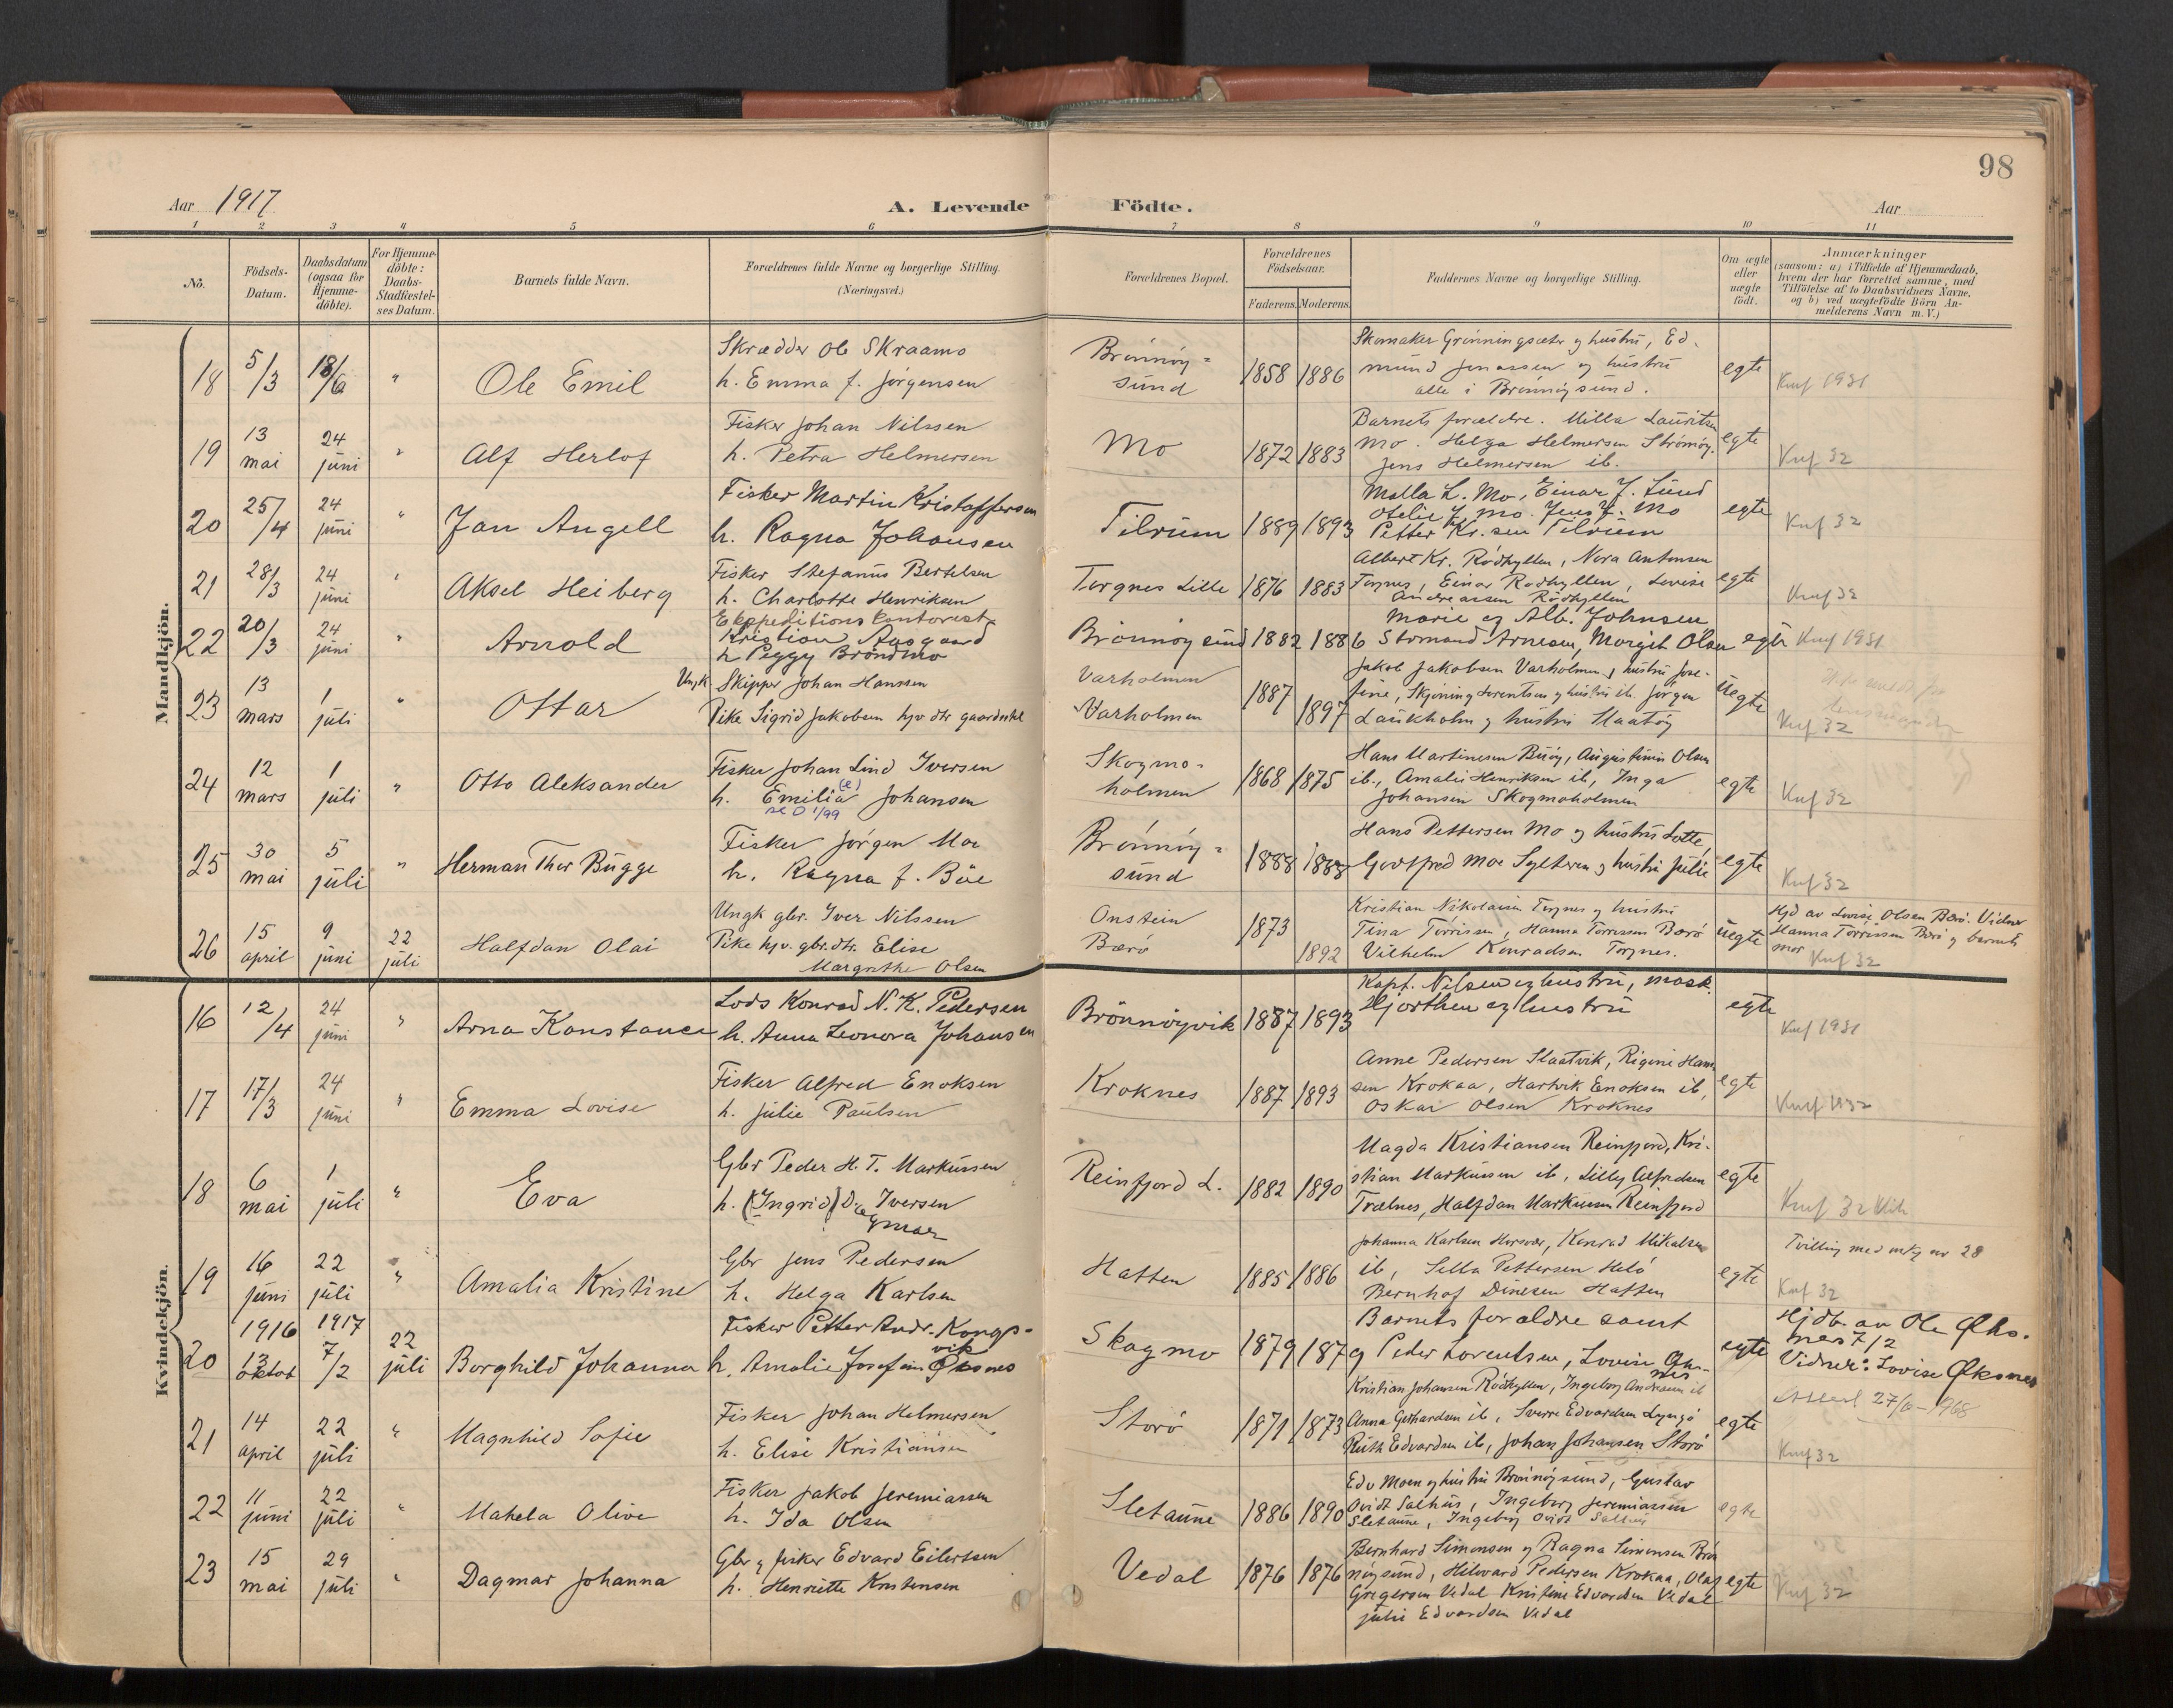 98
Aar 1917
A. Levende Födte.
Aar
1 2 3 4 5 6 7 8 9 10 11
No.
Födsels-
Datum.
Daabsdatum
(ogsaa for
Hjemme-
döbte).
For Hjemme-
döbte:
Daabs-
Stadfæstel-
ses Datum.
Barnets fulde Navn.
Forældrenes fulde Navne og borgerlige Stilling.
(Næringsvei.)
Forældrenes Bopæl.
Forældrenes
Födselsaar.
Faderens. Moderens.
Faddernes Navne og borgerlige Stilling.
Om ægte
eller
uægte
födt.
Anmærkninger
(saasom: a) i Tilfælde af Hjemmedaab,
hvem der har forrettet samme, med
Tilföielse af to Daabsvidners Navne,
og b) ved uægtefödte Börn An-
melderens Navn m. V.)
Mandkjön.
18
5/3
18/6
"
Ole Emil
Skrædder Ole Skraamo
h. Emma f. Jørgensen
Brönnöy=
sund
1858 1886
Skomaker Grønningsæter og hustru, Ed-
mund Jonassen og hustru
alle i Brønnøysund.
egte
Knf 1931
19
13
mai
24
juni
"
Alf Herlof
Fisker Johan Nilssen
h. Petra Helmersen
Mo
1872 1883
Barnets forældre. Milla Lauritsen
Mo. Helga Helmersen Strömöy.
Jens Helmersen ib.
egte
Knf 32
20
25/4
24
juni
"
Jan Angell
Fisker Martin Kristoffersen
h. Ragna Johansen
Tilrum
1889 1893
Malla L. Mo, Einar J. Lund
Otelie J. Mo. Jens J. Mo
Petter Kr.sen Tilrum
egte
Knf 32
21
28/3
24
juni
"
Aksel Heiberg
Fisker Stefanus Bertelsen
h. Charlotte Henriksen
Torgnes Lille
1876 1883
Albert Kr. Rödhyllen, Nora Antonsen
Torgnes, Einar Rodhyllen, Lovise
Andreassen Rödhyllen
egte
Knf 32
22
20/3
24
juni
"
Arnold
Ekspeditions kontorist
Kristian Aasgaard
h Peggy Bröndmo
Brönnöysund
1882 1886
Marie og Alb. Johnsen
Stormand Arnesen, Margit Olsen
egte
Knf 1931
23
13
mars
1
juli
"
Ottar
Ungk. Skipper Johan Hanssen
Pike Sigrid Jakobsen hjv dtr gaardarb
Varholmen
Varholmen
1887
1897
Jakob Jakobsen Varholmen, hustru Jose-
fine, Skjöning Lorentsen og hustru ib. Jörgen
Laukholm og hustru Slaatöy
uegte
Knf 32
24
12
mars
1
juli
"
Otto Aleksander
Fisker Johan Lind Iversen
h. Emilia (e) Johansen
se D 1/99
Skogmo-
holmen
1868 1875
Hans Martinesen Buöy, Augustinus Olsen
ib., Amalie Henriksen ib, Inga
Johansen Skogmoholmen
egte
Knf 32
25
30
mai
5
juli
"
Herman Thor Bugge
Fisker Jörgen Moe
h. Ragna f. Büe
Brönnöy=
sund
1888 1888
Hans Pettersen Mo og hustru Lotte,
Godtfred Moe Sylteren og hustru Julie
egte
Knf 32
26
15
april
9
juni
22
juli
Halfdan Olai
Ungk gbr. Iver Nilssen
Pike hjv. gbr.dtr. Elise
Margrethe Olsen
Onstein
Bærö
1873
1892
Kristian Nikolaisen Torgnes og hustru
Tina Torrissen, Hanna Torrissen Bærö
Vilhelm Konradsen Torgnes.
uegte
Hjd av Lovise Olsen Bærö. Vidner
Hanna Torrissen Bærö og barnets
mor Knf 32
Kvindekjön.
16
12/4
24
juni
"
Arna Konstance
Lods Konrad N. K. Pedersen
h. Anna Leonora Johansen
Brönnöyvik
1887 1893
Kapt. Nilsen og hustru, mask.
Hjorthen og hustru
egte
Knf 1931
17
17/3
24
juni
"
Emma Lovise
Fisker Alfred Enoksen
h. Julie Paulsen
Kroknes
1887 1893
Anne Pedersen Slaatvik, Rigeni Han-
sen Krokaa, Hartvik Enoksen ib,
Oskar Olsen Kroknes
egte
Knf 1932
18
6
mai
1
juli
"
Eva
Gbr Peder H. T. Markussen
h. (Ingrid) Dagmar Iversen
Reinfjord L.
1882 1890
Magda Kristiansen Reinfjord, Kri-
stian Markussen ib, Lilly Alfredsen
Trælnes, Halfdan Markussen Reinfjord
egte
Knf 32
19
16
juni
22
juli
"
Amalia Kristine
Gbr Jens Pedersen
h. Helga Karlsen
Hatten
1885 1886
Johanna Karlsen Horsvær, Konrad Mikalsen
ib, Sella Pettersen Helö
Bernhof Dinesen Hatten
egte
Tvilling med mkj nr 28
Knf 32
20
1916
13
oktob
1917
7/2
22
juli
Borghild Johanna
Fisker Petter Andr. Kongs-
vik
h. Amalie Josefine Øksnes
Skogmo
1879 1879
Barnets foraldre samt
Peder Lorentsen, Lovise Øks-
nes
egte
Hjdb. av Ole Øks-
nes 7/2
Vidner: Lovise Øksnes
Attest 27/6-1968
21
14
april
22
juli
"
Magnhild Sofie
Fisker Johan Helmersen
h. Elise Kristiansen
Storö
1871 1873
Kristian Johansen Rödhyllen, Ingeborg Andreasen ib
Anna Gerhardsen ib, Sverre Edvardsen Lyngö
Ruth Edvardsen ib, Johan Johansen Storö
egte
Knf 32
22
11
juni
22
juli
"
Mahela Olive
Fisker Jakob Jeremiassen
h. Ida Olsen
Sletaune
1886 1890
Edv Moen og hustru Brönnöysund, Gustav
Ovidt Salhus, Ingeborg Jeremiassen
Sletaune, Ingeborg Ovidt Salhus
egte
23
15
mai
29
juli
"
Dagmar Johanna
Gbr og fisker Edvard Eilertsen
h. Henriette Kristensen
Vedal
1876 1876
Bernhard Simonsen og Ragna Simonsen Brön
nöysund, Hilevard Pedersen Krokaa, Olaf
Gregersen Vedal Kristine Edvardsen Vedal
Julie Edvardsen Vedal
egte
Knf 32